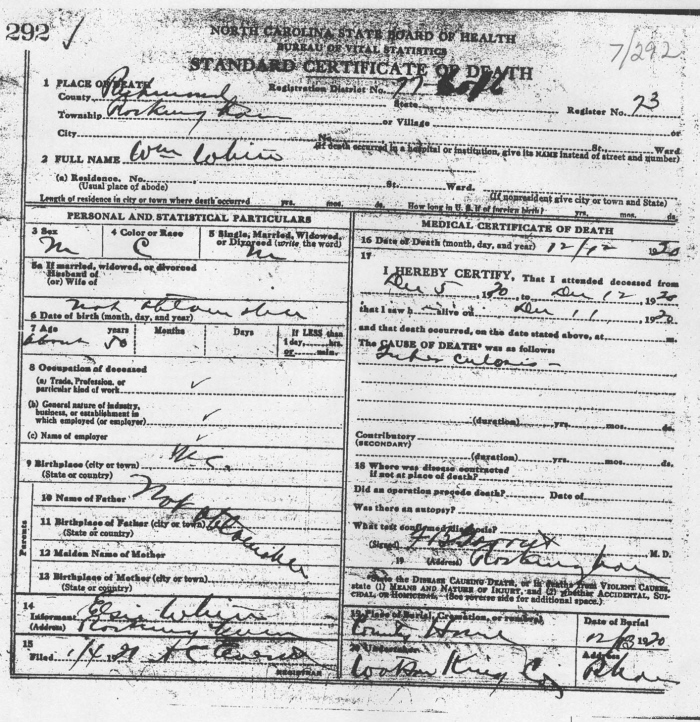 292 ✓
NORTH CAROLINA STATE BOARD OF HEALTH
BUREAU OF VITAL STATISTICS
7/292
STANDARD CERTIFICATE OF DEATH
1 PLACE OF DEATH Registration District No. 77
County Richmond State Register No. 73
Township Rockingham or Village or
City No. St. Ward
(If death occurred in a hospital or institution, give its NAME instead of street and number)
2 FULL NAME Wm White
(a) Residence. No. St. Ward.
(Usual place of abode) (If nonresident give city or town and State)
Length of residence in city or town where death occurred yrs. mos. ds. How long in U. S. if of foreign birth? yrs. mos. ds.
PERSONAL AND STATISTICAL PARTICULARS
3 Sex 4 Color or Race 5 Single, Married, Widowed,
or Divorced (write the word)
M C M
5a If married, widowed, or divorced
Husband of
(or) Wife of
Not obtainable
6 Date of birth (month, day, and year)
7 Age years Months Days If LESS than
about 50 1 day, hrs.
or min.
8 Occupation of deceased
(a) Trade, Profession, or
particular kind of work ✓
(b) General nature of industry,
business, or establishment in
which employed (or employer) ✓
(c) Name of employer
N.C.
9 Birthplace (city or town)
(State or country)
Parents
10 Name of Father Not obtainable
11 Birthplace of Father (city or town)
(State or country)
12 Maiden Name of Mother
13 Birthplace of Mother (city or town)
(State or country)
14
Informant Elsie White
(Address) Rockingham
15
Filed 1/4 1921
REGISTRAR
MEDICAL CERTIFICATE OF DEATH
16 Date of Death (month, day, and year) 12/12 1920
17
I HEREBY CERTIFY, That I attended deceased from
Dec 5, 1920, to Dec 12, 1920
that I saw h alive on Dec 11, 1920
and that death occurred, on the date stated above, at m.
The CAUSE OF DEATH* was as follows:
Tuberculosis
(duration) yrs. mos. ds.
Contributory
(SECONDARY)
(duration) yrs. mos. ds.
18 Where was disease contracted
if not at place of death?
Did an operation precede death? Date of
Was there an autopsy?
What test confirmed diagnosis?
(Signed) M. D.
19 (Address) Rockingham
*State the DISEASE CAUSING DEATH, or in deaths from VIOLENT CAUSES,
state (1) MEANS AND NATURE OF INJURY, and (2) whether ACCIDENTAL, SUI-
CIDAL, or HOMICIDAL. (See reverse side for additional space.)
19 Place of Burial, Cremation, or removal Date of Burial
County Home 12/13 1920
20 Undertaker Address
King Co